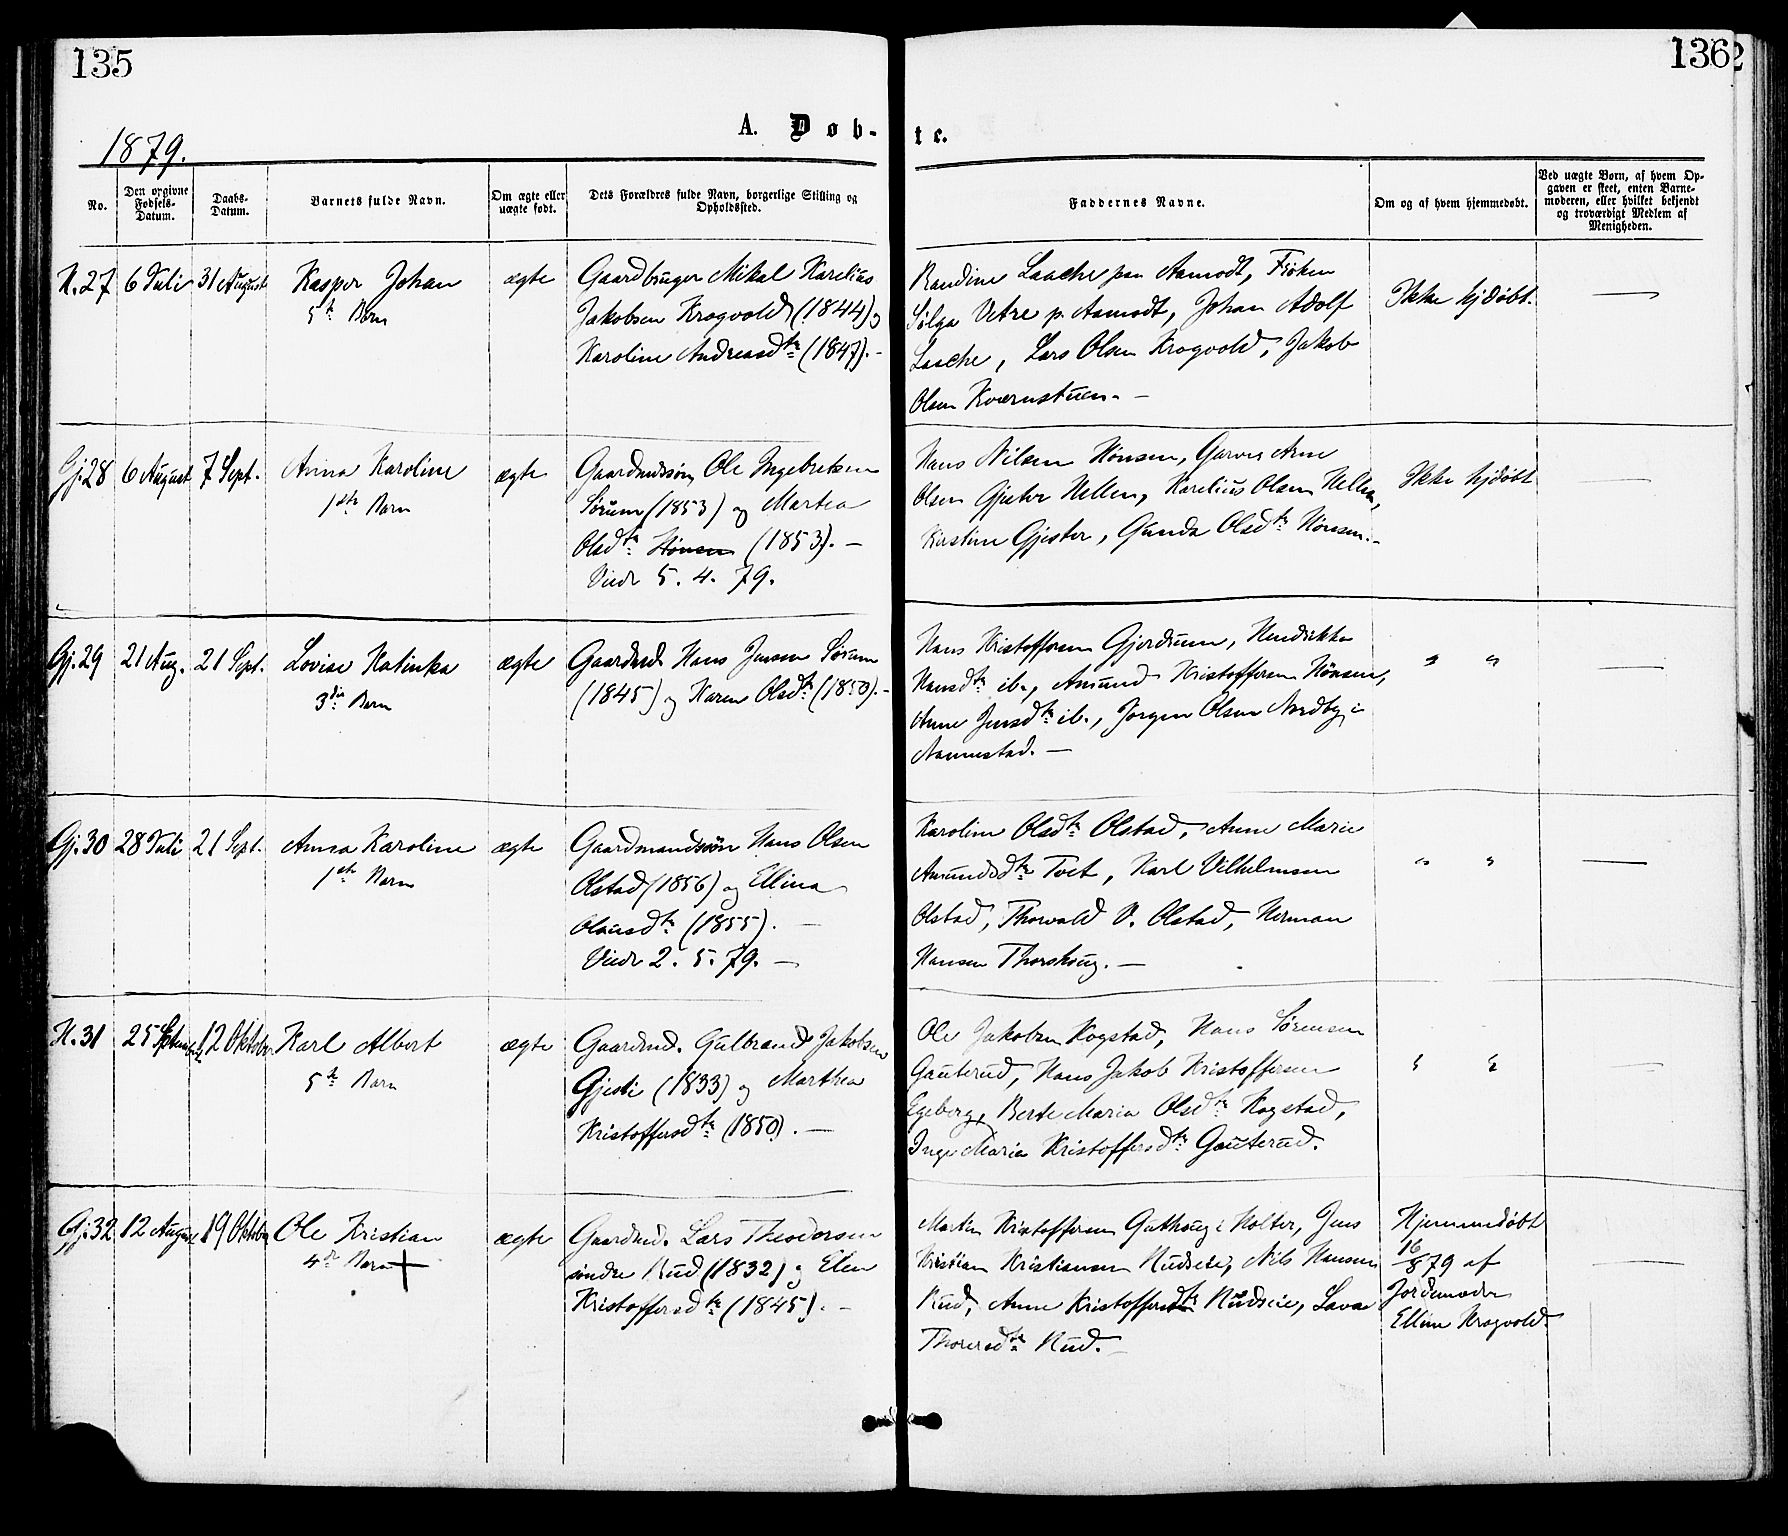 135
136
A. Døb-
te.
1879.
No.
Den opgivne Fødsels-Datum.
Daabs-Datum.
Barnets fulde Navn.
Om ægte eller uægte født.
Dets Forældres fulde Navn, borgerlige Stilling og Opholdssted.
Faddernes Navne.
Om og af hvem hjemmedøbt.
Ved uægte Børn, af hvem Op-
gaven er skeet, enten Barne-
moderen, eller hvilket bekjendt
og troværdigt Medlem af
Menigheden.
H.27 6 Juli 31 August Kasper Johan
5te Barn
ægte
Gaardbruger Mikal Karelius
Jakobsen Krogvold (1844) og
Karoline Andreasdtr (1847). -
Randine Laache paa Aamodt, Frøken
Vetre p. Aamodt, Johan Adolf
Laache, Lars Olsen Krogvold, Jakob
Olsen Kværnstuen. -
Ikke hjdøbt. —
Gj.28 6 August 7 Sept. Anna Karoline
1ste Barn
ægte
Gaardmdssøn Ole Ingebretsen
Sørum (1853) og Martea
Olsdtr Hønsen (1853). -
Viede 5. 4. 79.
Hans Nilsen Hønsen, Garver Arne
Olsen Gjester Hellen, Karelius Olsen Hellen,
Kirstine Gjester, Gunda Olsdtr Hønsen. -
Ikke hjdøbt —
Gj.29 21 Aug. 21 Sept. Lovise Katinka
3die Barn
ægte
Gaardmd. Hans Jensen Sørum
(1845) og Karen Olsdtr (1850). -
Hans Kristoffersen Gjordrum, Hendrikke
Hansdtr ib., Amund Kristoffersen Hønsen,
Anne Jensdtr ib., Jørgen Olsen Nordby i
Nannestad. —
" " —
Gj.30 28 Juli 21 Sept. Anna Karoline
1ste Barn
ægte
Gaardmandssøn Hans Olsen
Olstad (1856) og Ellina
Olausdtr (1855). -
Viede 2. 5. 79. -
Karoline Olsdtr Olstad, Anne Marie
Amundsdtr Tvet, Karl Vilhelmsen
Olstad, Thorvald V. Olstad, Herman
Hansen Thorshoug. -
" " —
H.31 25 September 12 Oktober Karl Albert
5te Barn
ægte
Gaardmd. Gulbrand Jakobsen
Gjesti (1833) og Marthea
Kristoffersdtr (1850). -
Ole Jakobsen Kogstad, Hans Sørensen
Gauterud, Hans Jakob Kristoffersen
Egeberg, Berte Marie Olsdtr Kogstad,
Inge Marie Kristoffersdtr Gauterud.
" " —
Gj.32 12 August 19 Oktober Ole Kristian
4de Barn +
ægte
Gaardmd. Lars Theodorsen
søndre Rud (1832) og Elen
Kristoffersdtr (1845). -
Martin Kristoffersen Guthoug i Holter, Jens
Kristian Kristiansen Rudseie, Nils Hansen
Rud, Anne Kristoffersdtr Rudseie, Lava
Thorersdtr Rud. -
Hjemmedøbt
16/8 79 af
Jordemoder
Elline Krogvold. —